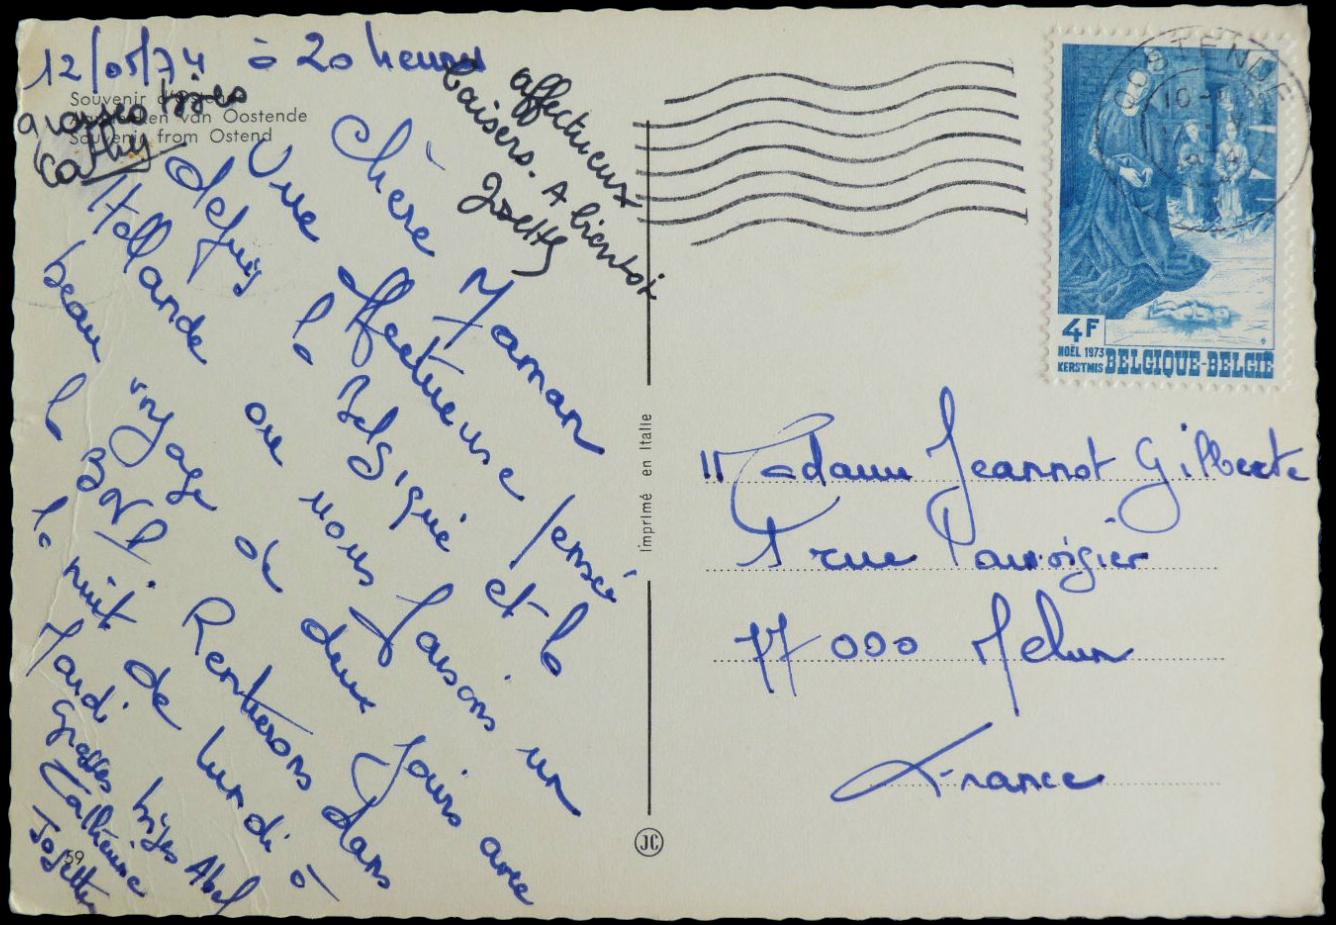 12/05/74 à 20 heures
Souvenir d'Ostende
van Oostende
Souvenir from Ostend
grosses bises
Cathy
affectueux
baisers. A bientôt
Josette
Chère Maman
Une affectueuse pensée
depuis la Belgique et la
Hollande ou nous faisons un
beau voyage de deux jours avec
la BNP. Rentrerons dans
la nuit de lundi à
Mardi
Grosses bises Abel
Catherine
Josette
59
Imprimé en Italie
JC
OOSTENDE
4F
NOËL 1973
KERSTMIS
BELGIQUE-BELGIË
Madame Jeannot Gilberte
1 rue
77 000 Melun
France